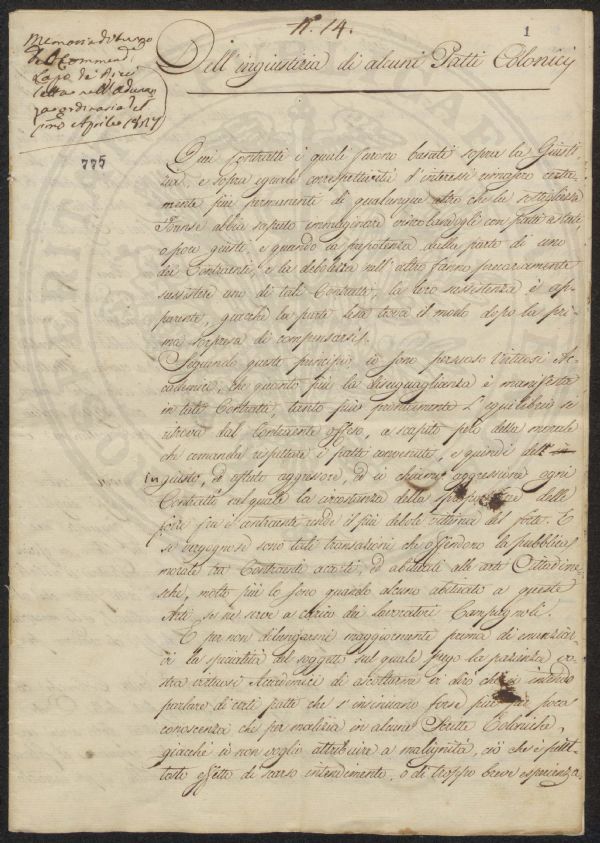 N.º 14.
1
Dell'ingiustizia di alcuni Patti Colonici
Memoria di turno
del Commend.
Lapo de' Ricci
letta nell'Adunan
za ordinaria del
primo Aprile 1827
775
Quei Contratti i quali furono basati sopra la Giusti
zia, e sopra eguale correspettività d'interessi comparvero certa
mente più permanenti di qualunque altro che la sottigliezza
Forense abbia saputo immaginare vincolandogli con patti
o poco giusti, e quando la prepotenza dalla parte di uno
dei Contraenti, e la debolezza nell'altro fanno precariamente
sussistere uno di tali Contratti, la loro sussistenza è ap-
parente, giacchè la parte lesa trova il modo dopo la pri
ma sorpresa di compensarsi.
Seguendo questi principj io sono persuaso Virtuosi Ac
cademici, che quanto più la diseguaglianza è manifesta
in tali Contratti, tanto più prontamente l'equilibrio si
ritrova dal Contraente offeso, a scapito però della morale
che comanda rispettare i patti convenuti, e quindi dell'
ingiusto, ed astuto aggressore, ed io chiamo aggressione ogni
Contratto nel quale la circostanza della sproporzione delle
forze fra i contraenti rende il più debole vittima del forte. E
se vergognose sono tali transazioni che offendono la pubblica
morale tra Contraenti accorti, ed abituati alle arti Cittadine
sche, molto più lo sono quando alcuno abituato a queste
Arti se ne serve a carico dei lavoratori Campagnoli.
E per non dilungarmi maggiormente prima di enunziar
vi la specialità del soggetto sul quale prego la pazienza vo
stra virtuosi Accademici di ascoltarmi vi dirò che io intendo
parlare di certi patti che s'insinuano forse più per poca
conoscenza che per malizia in alcune Scritte Coloniche,
giacchè io non voglio attribuire a malignità, ciò che è piut
tosto effetto di scarso intendimento, o di troppo breve esperienza.